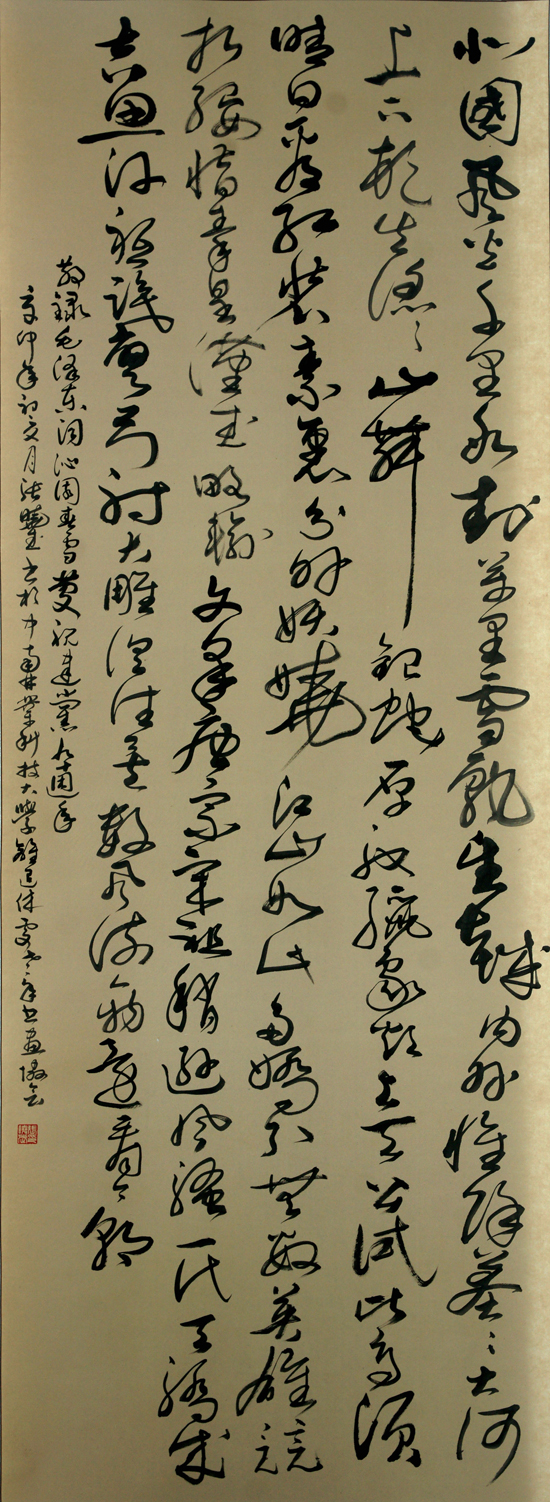 北國風光千里冰封萬里雪飄望長城內外惟餘莽々大河
上下頓失滔々山舞銀蛇原馳蠟象欲与天公試比高須
晴日看紅裝素裹分外妖嬈江山如此多嬌引無數英雄競
折腰惜秦皇漢武略輸文采唐宗宋祖稍遜風騷一代天驕成
吉思汗祇識彎弓射大雕俱往矣數風流人物還看今朝
敬錄毛澤東詞沁園春雪慶祝建黨九十週年
辛卯年初夏月張書於中南林業科技大學離退休處老年書畫協會